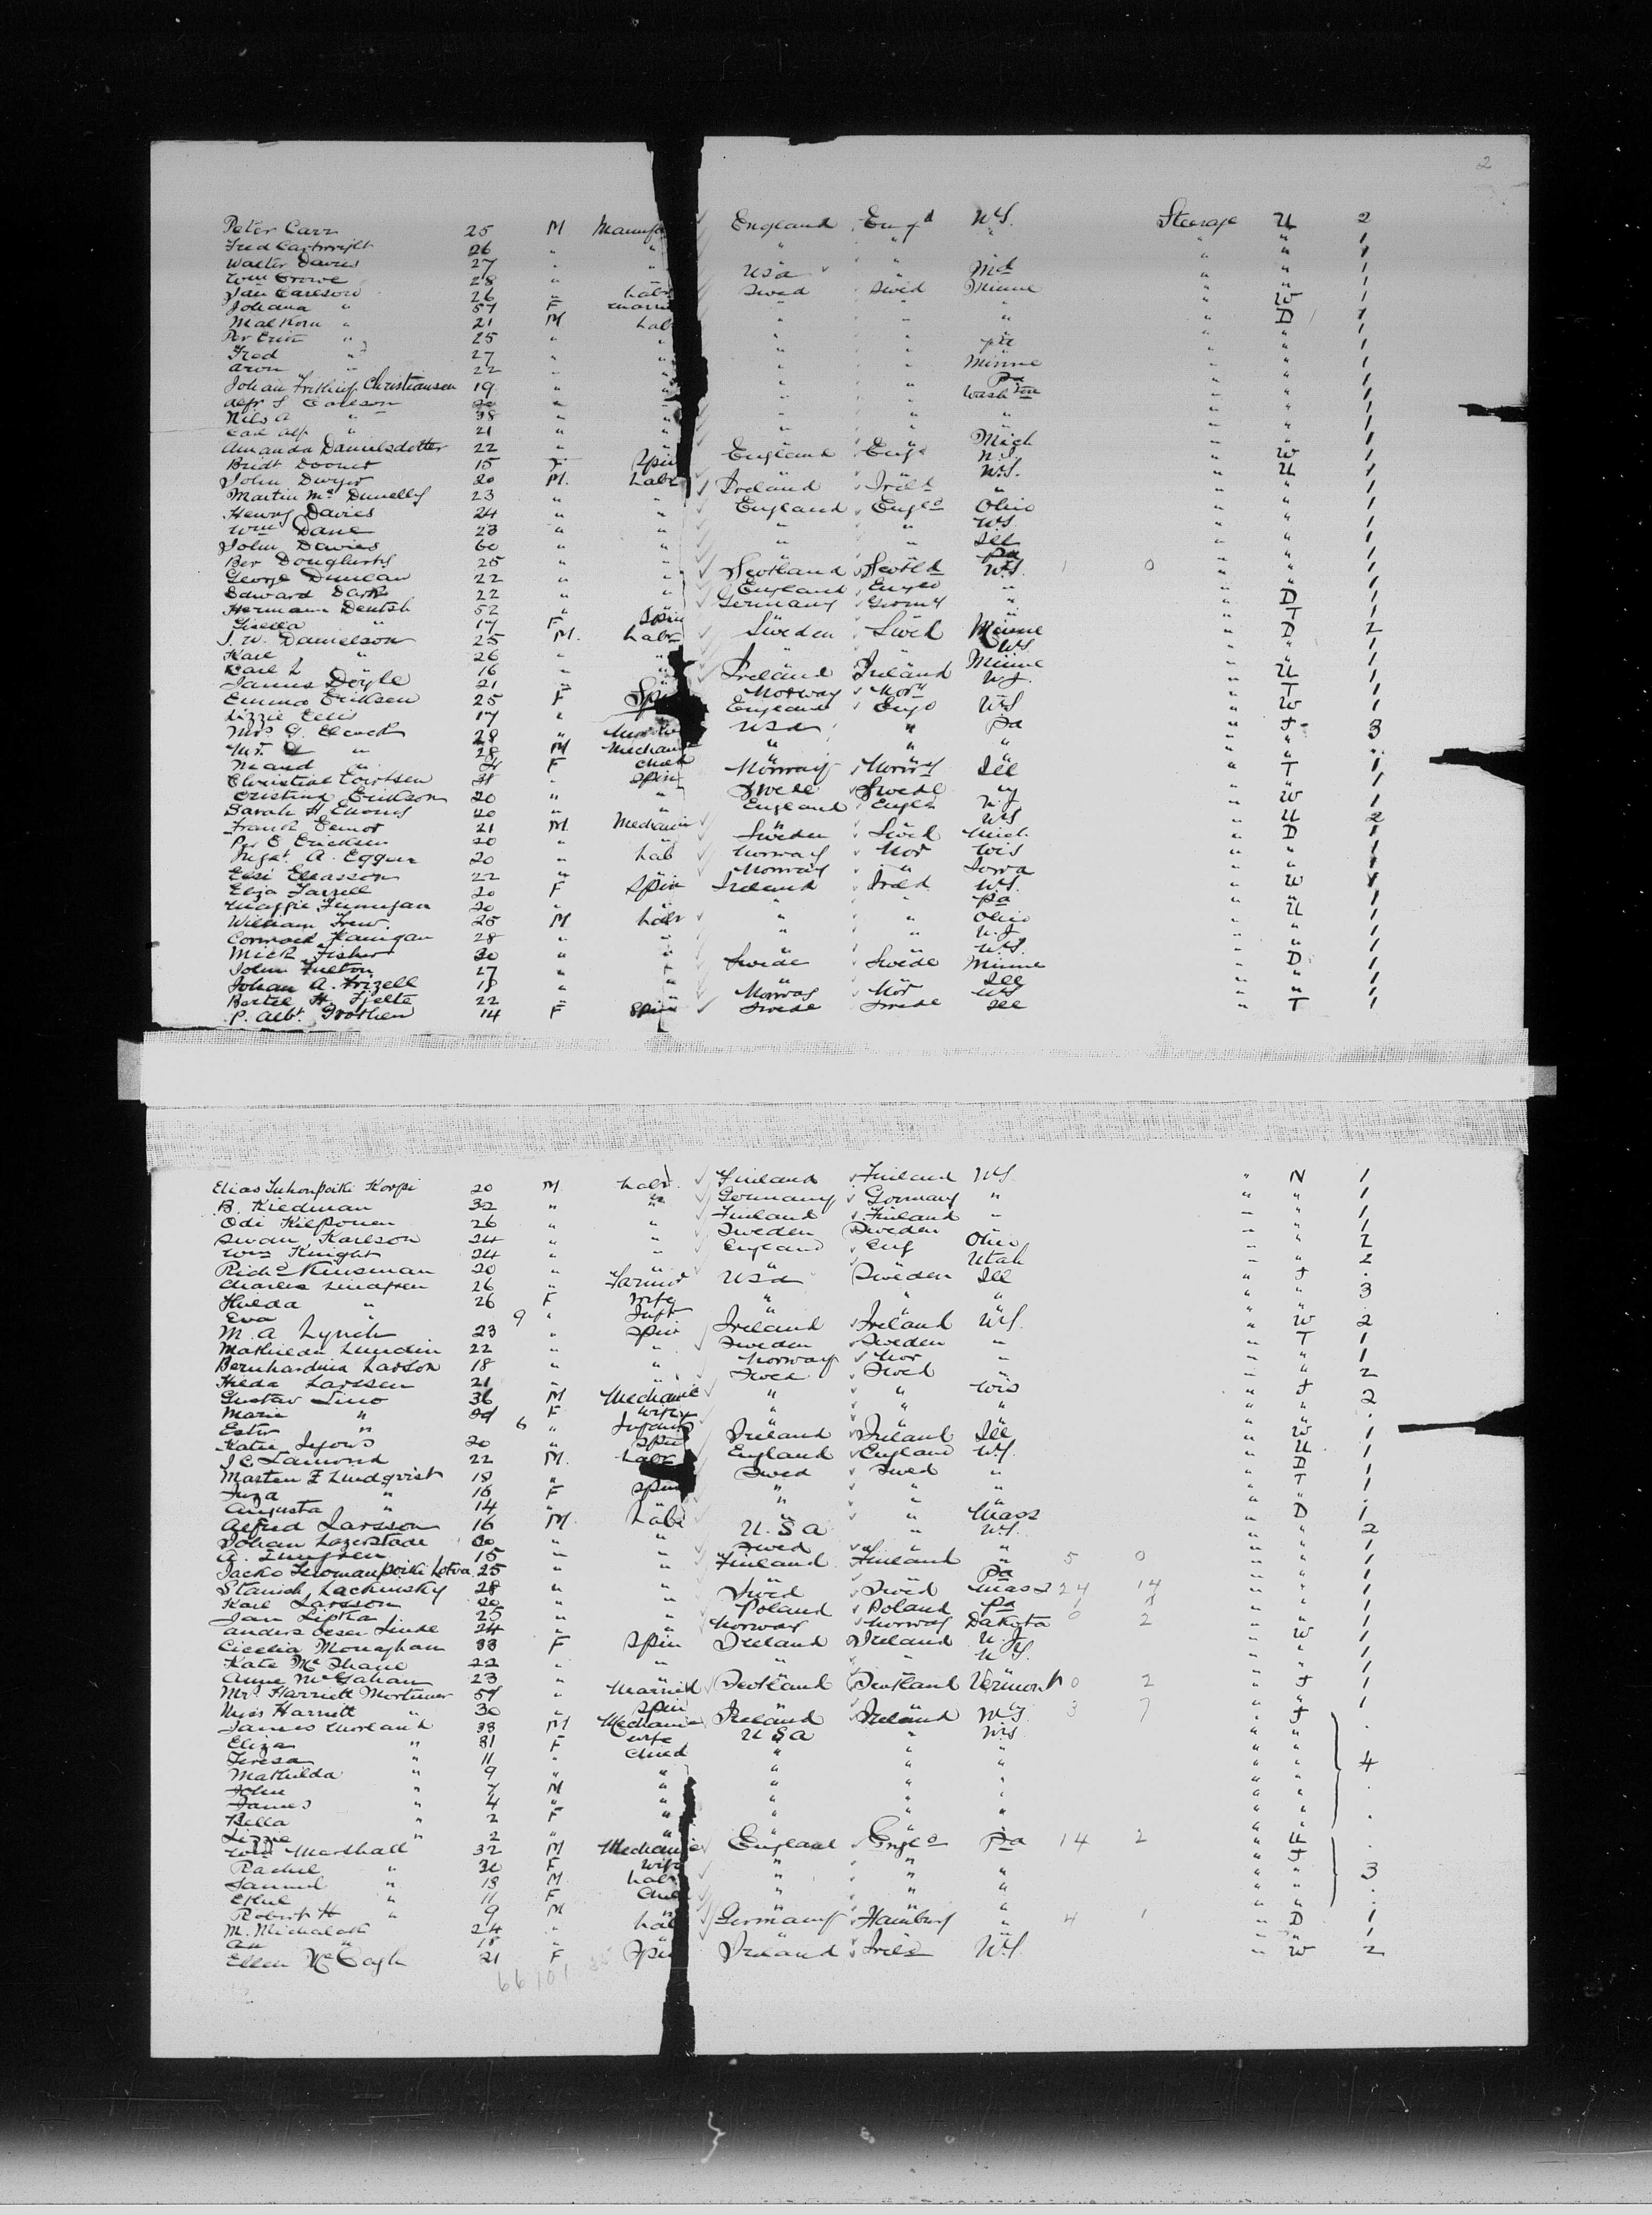 2
Peter Carr 25 M Manufa England Engd N.Y. Steerage U 2
Fred Cartwright 26 " " " " " " " 1
Walter Davies 27 " " " " " " 1
Wm Crowe 28 " " USA " Md " " 1
Jan Carlson 26 " Labr Swed Swed Minne " " 1
Johana " 57 F Marri " " " " W 1
Malkom " 21 M Lab " " " " D 1
Per Erik " 25 " " " " " " 1
Fred " 27 " " " " Pa " " 1
Aron " 22 " " " " Minne " " 1
Johan Christiansen 19 " " " " Pa " " 1
Alfr S Carlson " " " " Wash " " 1
Nils A " 38 " " " " " " " 1
Carl Alf " 21 " " " " " " 1
Amanda Danielsdotter 22 " " " " Mich " " 1
Bridt 15 F Spin England Engd N.Y. " W 1
John Dwyer 20 M. Labr N.Y. " U 1
Martin Mc Dunelly 23 " " Ireland Ireld " " " 1
Henry Davies 24 " " England Engld Ohio " " 1
Wm Dane 23 " " " " N.Y. " " 1
John Davies 60 " " " " Ill " " 1
Ber Dougherty 25 " " Pa " " 1
George Duncan 22 " " Scotland Scotld N.Y. 1 0 " " 1
Edward Dark 22 " " England Engld " " " 1
Hermann Deutsh 52 " " Germany Germy " " D 1
Gisella " 17 F Spin " " " " T 1
J. W. Danielson 25 M. Labr Sweden Swed Minne " D 2
Karl " 26 " " " " N.Y. " " 1
Carl L " 16 " " " " Minne " " 1
James Doyle 21 " " Ireland Ireland N.J. " U 1
Emma Eriksen 25 F Spin Norway Nor " " T 1
Lizzie Ellis 17 " England Engd N.Y. " W 1
Mrs G. 28 " USA " Pa " F 3
Mr. G " 28 M Mechani " " " " " .
Maud " F Child " " " " " .
Christine 21 " Spin Norway Norwy Ill " T 1
Cristina Erikson 20 " " Swede Swede " " " 1
Sarah H 20 " " England Engld N.J. " W 1
Frank 21 M. Mechani " " N.Y. " U 2
Per E Erickson 20 " " Sweden Swed Mich " D 1
A. Egger 20 " Lab Norway Nor Wis " " 1
Eliasson 22 " " Norway " Iowa " " 1
Eliza Farrell 20 F Spin Ireland Ireld N.Y. " W 1
Maggie Finnigan 20 " " " " Pa " " 1
William Frew 25 M Labr " " Ohio " U 1
Cormack Flanigan 28 " " " " N.J. " " 1
Mick Fisher 30 " " " " N.Y. " " 1
John Fulton 27 " " Swede Swede Minne " D 1
Johan A. Frizell 18 " " " " Ill " " 1
Bertel H. Fjelte 22 " " Norway Nor N.Y. " " 1
P. Albt. Grothen 14 F Spin Swede Swede Ill " T 1
Elias Juhonpoiki Korpi 20 M. Labr. Finland Finland N.Y. " N 1
B. Kiedman 32 " " Germany Germany " " " 1
Odi Kilponen 26 " " Finland Finland " " " 1
Swan Karlson 24 " " Sweden Sweden " " " 1
Wm Knight 24 " " England Eng Ohio " " 2
Richd Kinsman 20 " " " " Utah " " 2
Charles Lindgren 26 " Farmer USA Sweden Ill " F .
Hulda " 26 F Wife " " " " " 3
Eva " 9 " Inft " " " " " .
M. A Lynch 23 " Spin Ireland Ireland N.Y. " W 2
Mathilda Lundin 22 " " Sweden Sweden " " T 1
Bernhardina Larson 18 " " Norway Nor " " " 1
Hilda Larssen 21 " " Swed Swed " " " 2
Gustav Lino 36 M Mechanic " " Wis " F 2
Maria " F Wife " " " " " .
Ester " 6 " Infant " " " " " .
Katie Lyons 20 " Spin Ireland Ireland Ill " W 1
J C Lamond 22 M. Labr England England N.Y. " U 1
Marten F Lindqvist 18 " " Swed Swed " " D 1
Inga " 16 F Spin " " " " T 1
Augusta " 14 " " " " " " " 1
Alfred Larsson 16 M. Labr " " Mass " D 1
Johan Lagerstade " " U.S.A " N.Y. " " 2
A. 15 " " Swed " " " " 1
Jacko Luomanpoiki Lotva 25 " " Finland Finland " 5 0 " " 1
Stanish Lachinsky 28 " " Pa " " 1
Karl Larsson 20 " " Swed Swed Mass 24 14 " " 1
Jan Lipka 25 " " Poland Poland Pa " " 1
Anders Linde 24 " " Norway Norway Dakota 0 2 " " 1
Cicelia Monaghan 33 F Spin Ireland Ireland N.J. " W 1
Kate Mc Shane 22 " " " " N.Y. " " 1
Anne McGahan 23 " " " " " " 1
Mrs Harriett Mortimer 57 " Married Scotland Scotland Vermont 0 2 " F 1
Miss Harriett " 30 " Spin " " " " 1
James Morland 33 M Mechanic Ireland Ireland N.Y. 3 7 " F .
Eliza " 31 F Wife USA " Wis " " .
Teresa " 11 " Child " " " " " 4
Mathilda " 9 " " " " " " "
John " 7 M " " " " " " .
James " 4 " " " " " " "
Bella " 2 F " " " " " " .
Lizzie " 2 " " " " " " "
Wm Marshall 32 M Mechanic England Engld Pa 14 2 " U
Rachel " 30 F Wife " " " " F
Samuel " 18 M. Labr " " " " " 3
Ethel " 11 F Child " " " " " .
Robert H " 9 M " " " " " " .
M. Michalek 24 " Lab Germany Hamburg " 4 1 " D 1
An " 18 " " " " " " 1
Ellen McCagh 21 F Spin Ireland Ireld N.Y. " W 2
66 101